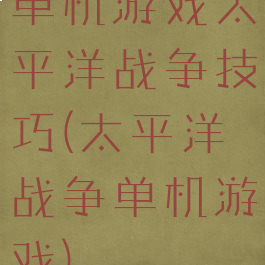 单机游戏太
平洋战争技
巧(太平洋
战争单机游
戏)